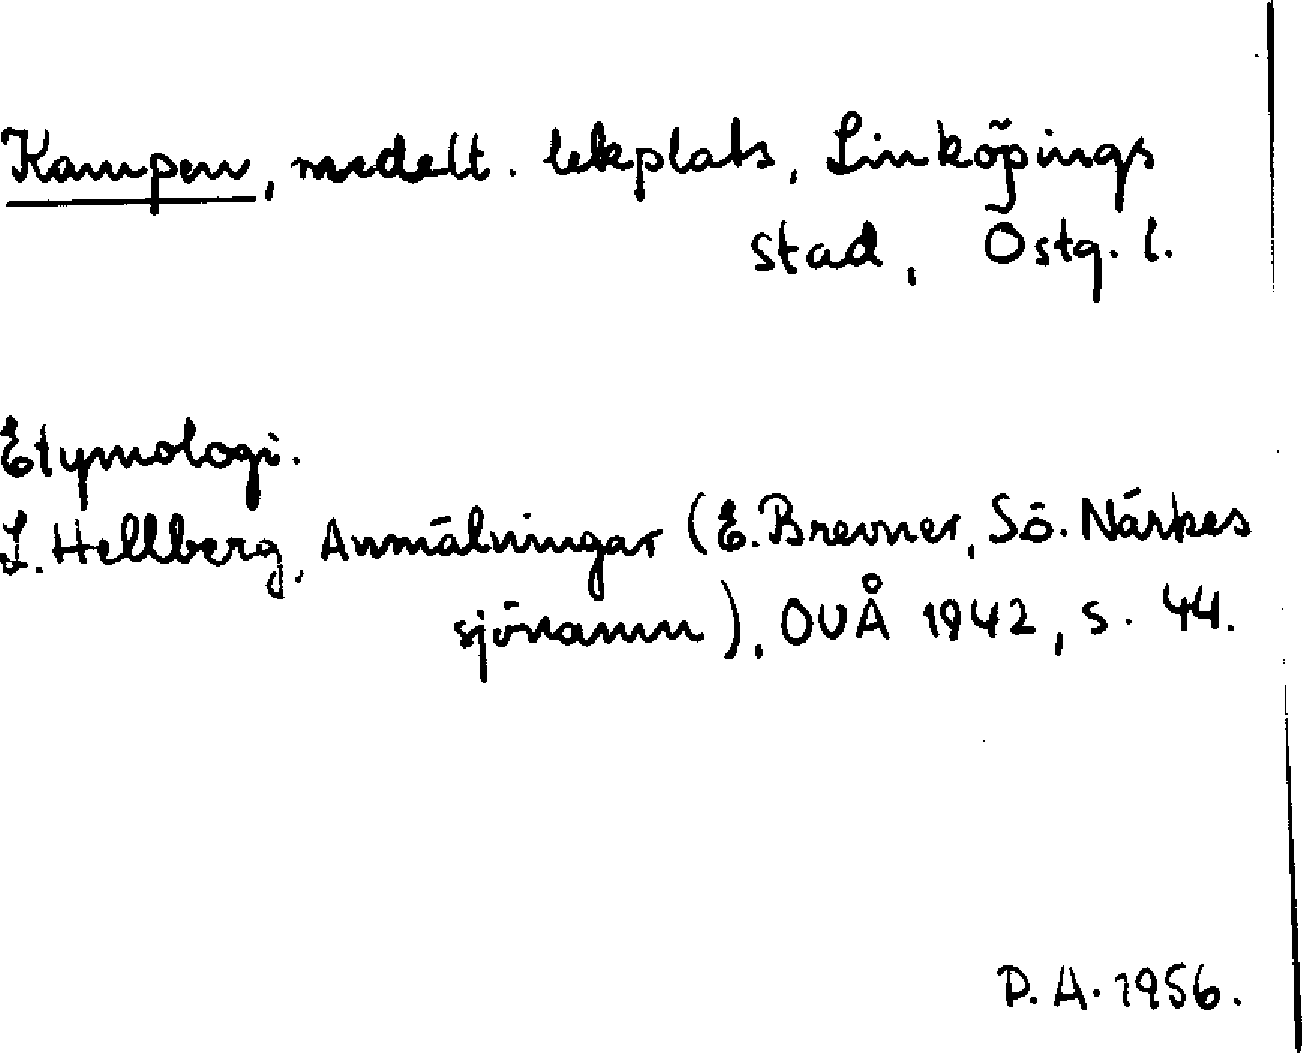 Kampen, medelt. lekplats, Linköpings
stad, Östg. l.
Etymologi.
L. Hellberg, Anmälningar (E. Brevner, Sö. Närkes
sjönamn), OUÅ 1942, s. 44.
D. A. 1956.